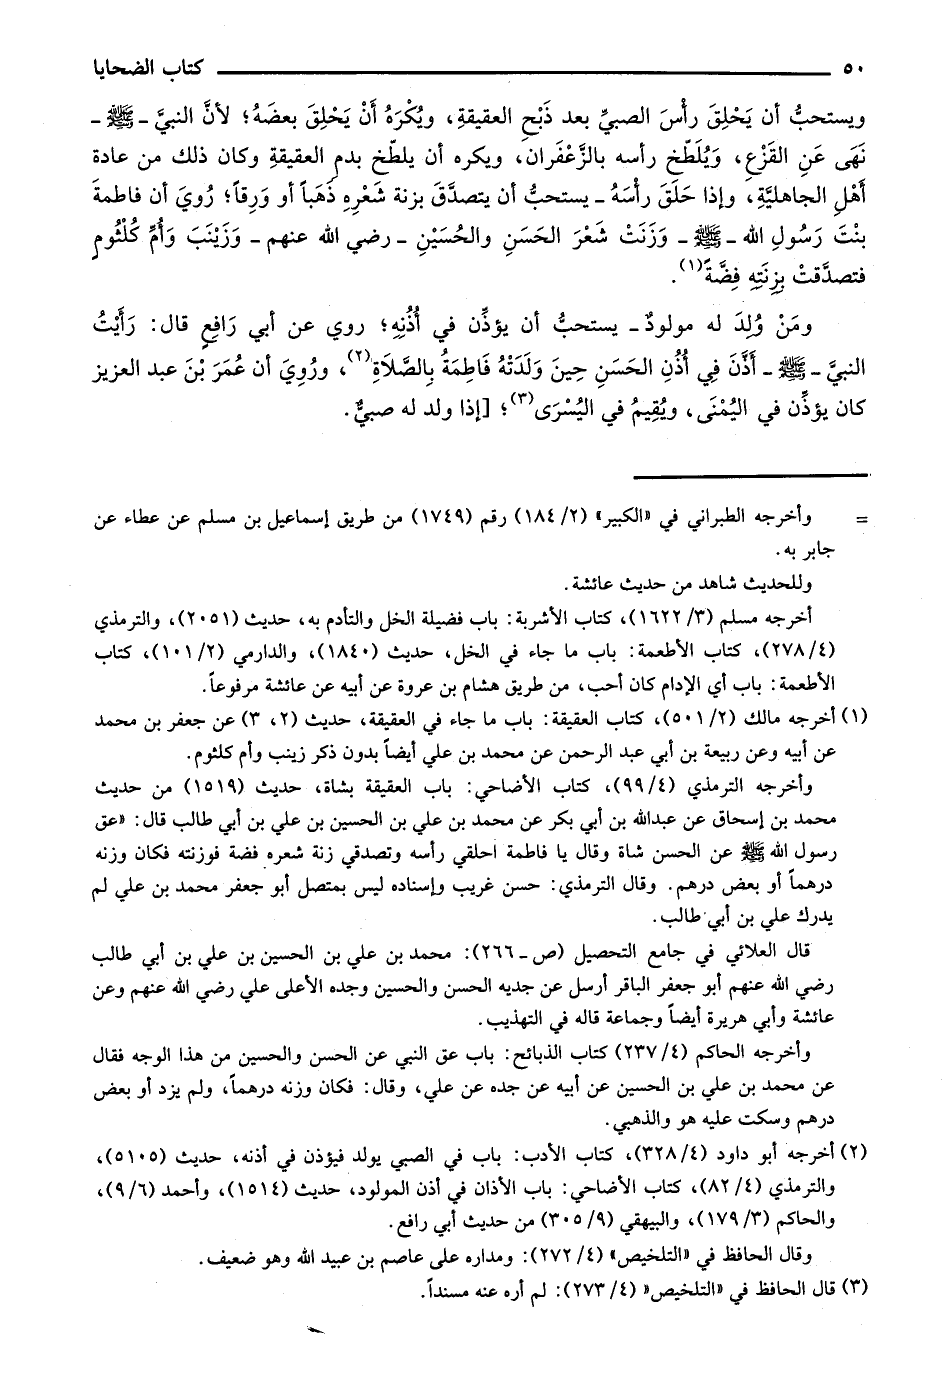 ٥٠ كتاب الضحايا
ويستحبُّ أن يَحْلِقَ رأْسَ الصبيِّ بعد ذَبْحِ العقيقةِ، ويُكْرَهُ أَنْ يَحْلِقَ بعضَهُ؛ لأنَّ النبيَّ ـ ﷺ ـ
نَهَى عَنِ القَزْعِ، وَيُلَطِّخ رأسه بالزَّعْفَران، ويكره أن يلطِّخ بدم العقيقةِ وكان ذلك من عادة
أَهْلِ الجاهليَّةِ، وإذا حَلَقَ رأْسَهُ ـ يستحبُّ أن يتصدَّقَ بزنة شَعْرِهِ ذَهَباً أو وَرِقاً؛ رُوِيَ أن فاطمةَ
بنْتَ رَسُولِ الله ـ ﷺ ـ وَزَنَتْ شَعْرَ الحَسَنِ والحُسَيْنِ ـ رضي الله عنهم ـ وَزَيْنَبَ وَأُمِّ كُلْثُومٍ
فتصدَّقتْ بِزِنَتِهِ فِضَّةً(١).
ومَنْ وُلِدَ له مولودٌ ـ يستحبُّ أن يؤذِّن في أُذُنِهِ؛ روي عن أبي رَافِعٍ قال: رَأَيْتُ
النبيَّ ـ ﷺ ـ أَذَّنَ فِي أُذُنِ الحَسَنِ حِينَ وَلَدَتْهُ فَاطِمَةُ بِالصَّلَاةِ(٢)، ورُوِيَ أن عُمَرَ بْنَ عبد العزيز
كان يؤذِّن في اليُمْنَى، ويُقِيمُ في اليُسْرَى(٣)؛ [إذا ولد له صبيٌّ.
= وأخرجه الطبراني في «الكبير» (٢/ ١٨٤) رقم (١٧٤٩) من طريق إسماعيل بن مسلم عن عطاء عن
جابر به.
وللحديث شاهد من حديث عائشة.
أخرجه مسلم (٣/ ١٦٢٢)، كتاب الأشربة: باب فضيلة الخل والتأدم به، حديث (٢٠٥١)، والترمذي
(٤/ ٢٧٨)، كتاب الأطعمة: باب ما جاء في الخل، حديث (١٨٤٠)، والدارمي (٢/ ١٠١)، كتاب
الأطعمة: باب أي الإدام كان أحب، من طريق هشام بن عروة عن أبيه عن عائشة مرفوعاً.
(١) أخرجه مالك (٢/ ٥٠١)، كتاب العقيقة: باب ما جاء في العقيقة، حديث (٢، ٣) عن جعفر بن محمد
عن أبيه وعن ربيعة بن أبي عبد الرحمن عن محمد بن علي أيضاً بدون ذكر زينب وأم كلثوم.
وأخرجه الترمذي (٤/ ٩٩)، كتاب الأضاحي: باب العقيقة بشاة، حديث (١٥١٩) من حديث
محمد بن إسحاق عن عبدالله بن أبي بكر عن محمد بن علي بن الحسين بن علي بن أبي طالب قال: «عق
رسول الله ﷺ عن الحسن شاة وقال يا فاطمة احلقي رأسه وتصدقي زنة شعره فضة فوزنته فكان وزنه
درهماً أو بعض درهم. وقال الترمذي: حسن غريب وإسناده ليس بمتصل أبو جعفر محمد بن علي لم
يدرك علي بن أبي طالب.
قال العلائي في جامع التحصيل (ص ـ ٢٦٦): محمد بن علي بن الحسين بن علي بن أبي طالب
رضي الله عنهم أبو جعفر الباقر أرسل عن جديه الحسن والحسين وجده الأعلى علي رضي الله عنهم وعن
عائشة وأبي هريرة أيضاً وجماعة قاله في التهذيب.
وأخرجه الحاكم (٤/ ٢٣٧) كتاب الذبائح: باب عق النبي عن الحسن والحسين من هذا الوجه فقال
عن محمد بن علي بن الحسين عن أبيه عن جده عن علي، وقال: فكان وزنه درهماً، ولم يزد أو بعض
درهم وسكت عليه هو والذهبي.
(٢) أخرجه أبو داود (٤/ ٣٢٨)، كتاب الأدب: باب في الصبي يولد فيؤذن في أذنه، حديث (٥١٠٥)،
والترمذي (٤/ ٨٢)، كتاب الأضاحي: باب الأذان في أذن المولود، حديث (١٥١٤)، وأحمد (٦/ ٩)،
والحاكم (٣/ ١٧٩)، والبيهقي (٩/ ٣٠٥) من حديث أبي رافع.
وقال الحافظ في «التلخيص» (٤/ ٢٧٢): ومداره على عاصم بن عبيد الله وهو ضعيف.
(٣) قال الحافظ في «التلخيص» (٤/ ٢٧٣): لم أره عنه مسنداً.